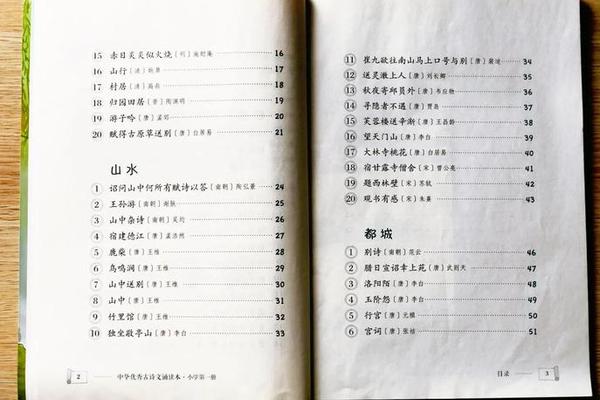 15 赤日炎炎似火烧〔明〕施耐庵 16
16 山行〔清〕姚鼐 17
17 村居〔清〕高鼎 18
18 归园田居〔晋〕陶渊明 19
19 游子吟〔唐〕孟郊 20
20 赋得古原草送别〔唐〕白居易 21
山水
① 诏问山中何所有赋诗以答〔南朝〕陶弘景 24
② 王孙游〔南朝〕谢朓 25
③ 山中杂诗〔南朝〕吴均 26
④ 宿建德江〔唐〕孟浩然 27
⑤ 鹿柴〔唐〕王维 28
⑥ 鸟鸣涧〔唐〕王维 29
⑦ 山中送别〔唐〕王维 30
⑧ 山中〔唐〕王维 31
⑨ 竹里馆〔唐〕王维 32
⑩ 独坐敬亭山〔唐〕李白 33
2 中华优秀古诗文诵读本·小学第一册
⑪ 崔九欲往南山马上口号与别〔唐〕裴迪 34
⑫ 送灵澈上人〔唐〕刘长卿 35
⑬ 秋夜寄邱员外〔唐〕韦应物 36
⑭ 寻隐者不遇〔唐〕贾岛 37
⑮ 芙蓉楼送辛渐〔唐〕王昌龄 38
⑯ 望天门山〔唐〕李白 39
⑰ 大林寺桃花〔唐〕白居易 40
⑱ 宿甘露寺僧舍〔宋〕曾公亮 41
⑲ 题西林壁〔宋〕苏轼 42
⑳ 观书有感〔宋〕朱熹 43
都城
① 别诗〔南朝〕范云 46
② 腊日宣诏幸上苑〔唐〕武则天 47
③ 洛阳陌〔唐〕李白 48
④ 玉阶怨〔唐〕李白 49
⑤ 行宫〔唐〕元稹 50
⑥ 宫词〔唐〕张祜 51
目录 3